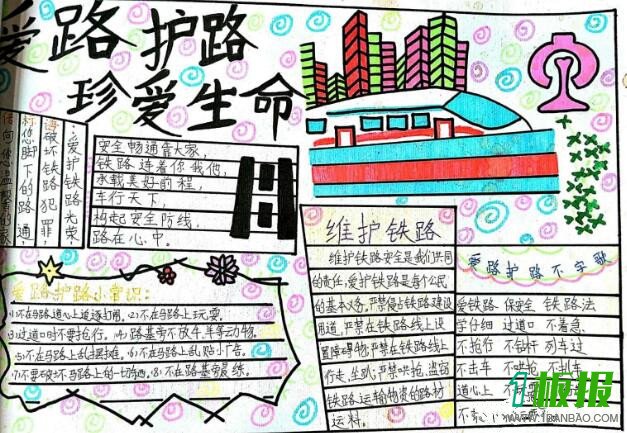 爱路护路
珍爱生命
爱护铁路光荣,
破坏铁路犯罪,
你脚下的路通
向你温馨的家
安全畅通靠大家,
铁路连着你我他,
承载美好前程,
车行天下,
构起安全防线,
路在心中。
爱路护路小常识:
1)不在马路道心上追逐打闹。2)不在马路上玩耍。
3)过道口时不要抢行。4)路基旁不放牛、羊等动物。
5)不在马路上乱摆摊。6)不在马路上乱贴小广告。
7)不要破坏马路上的一切
8)不在路基旁
维护铁路
维护铁路安全是我们共同
的责任,爱护铁路是每个公民
的基本义务,严禁侵占铁路建设
用道,严禁在铁路线上设
置障碍物,严禁在铁路线上
行走、坐卧,严禁哄抢、盗窃
铁路运输物资的路材
运料。
爱路护路不字歌
爱铁路 保安全 铁路法
学仔细 过道口 不着急
不抢行 不钻杆 列车过
不击车 不哄抢 不扒车
道心上
1板报
WWW.1BANBAO.COM